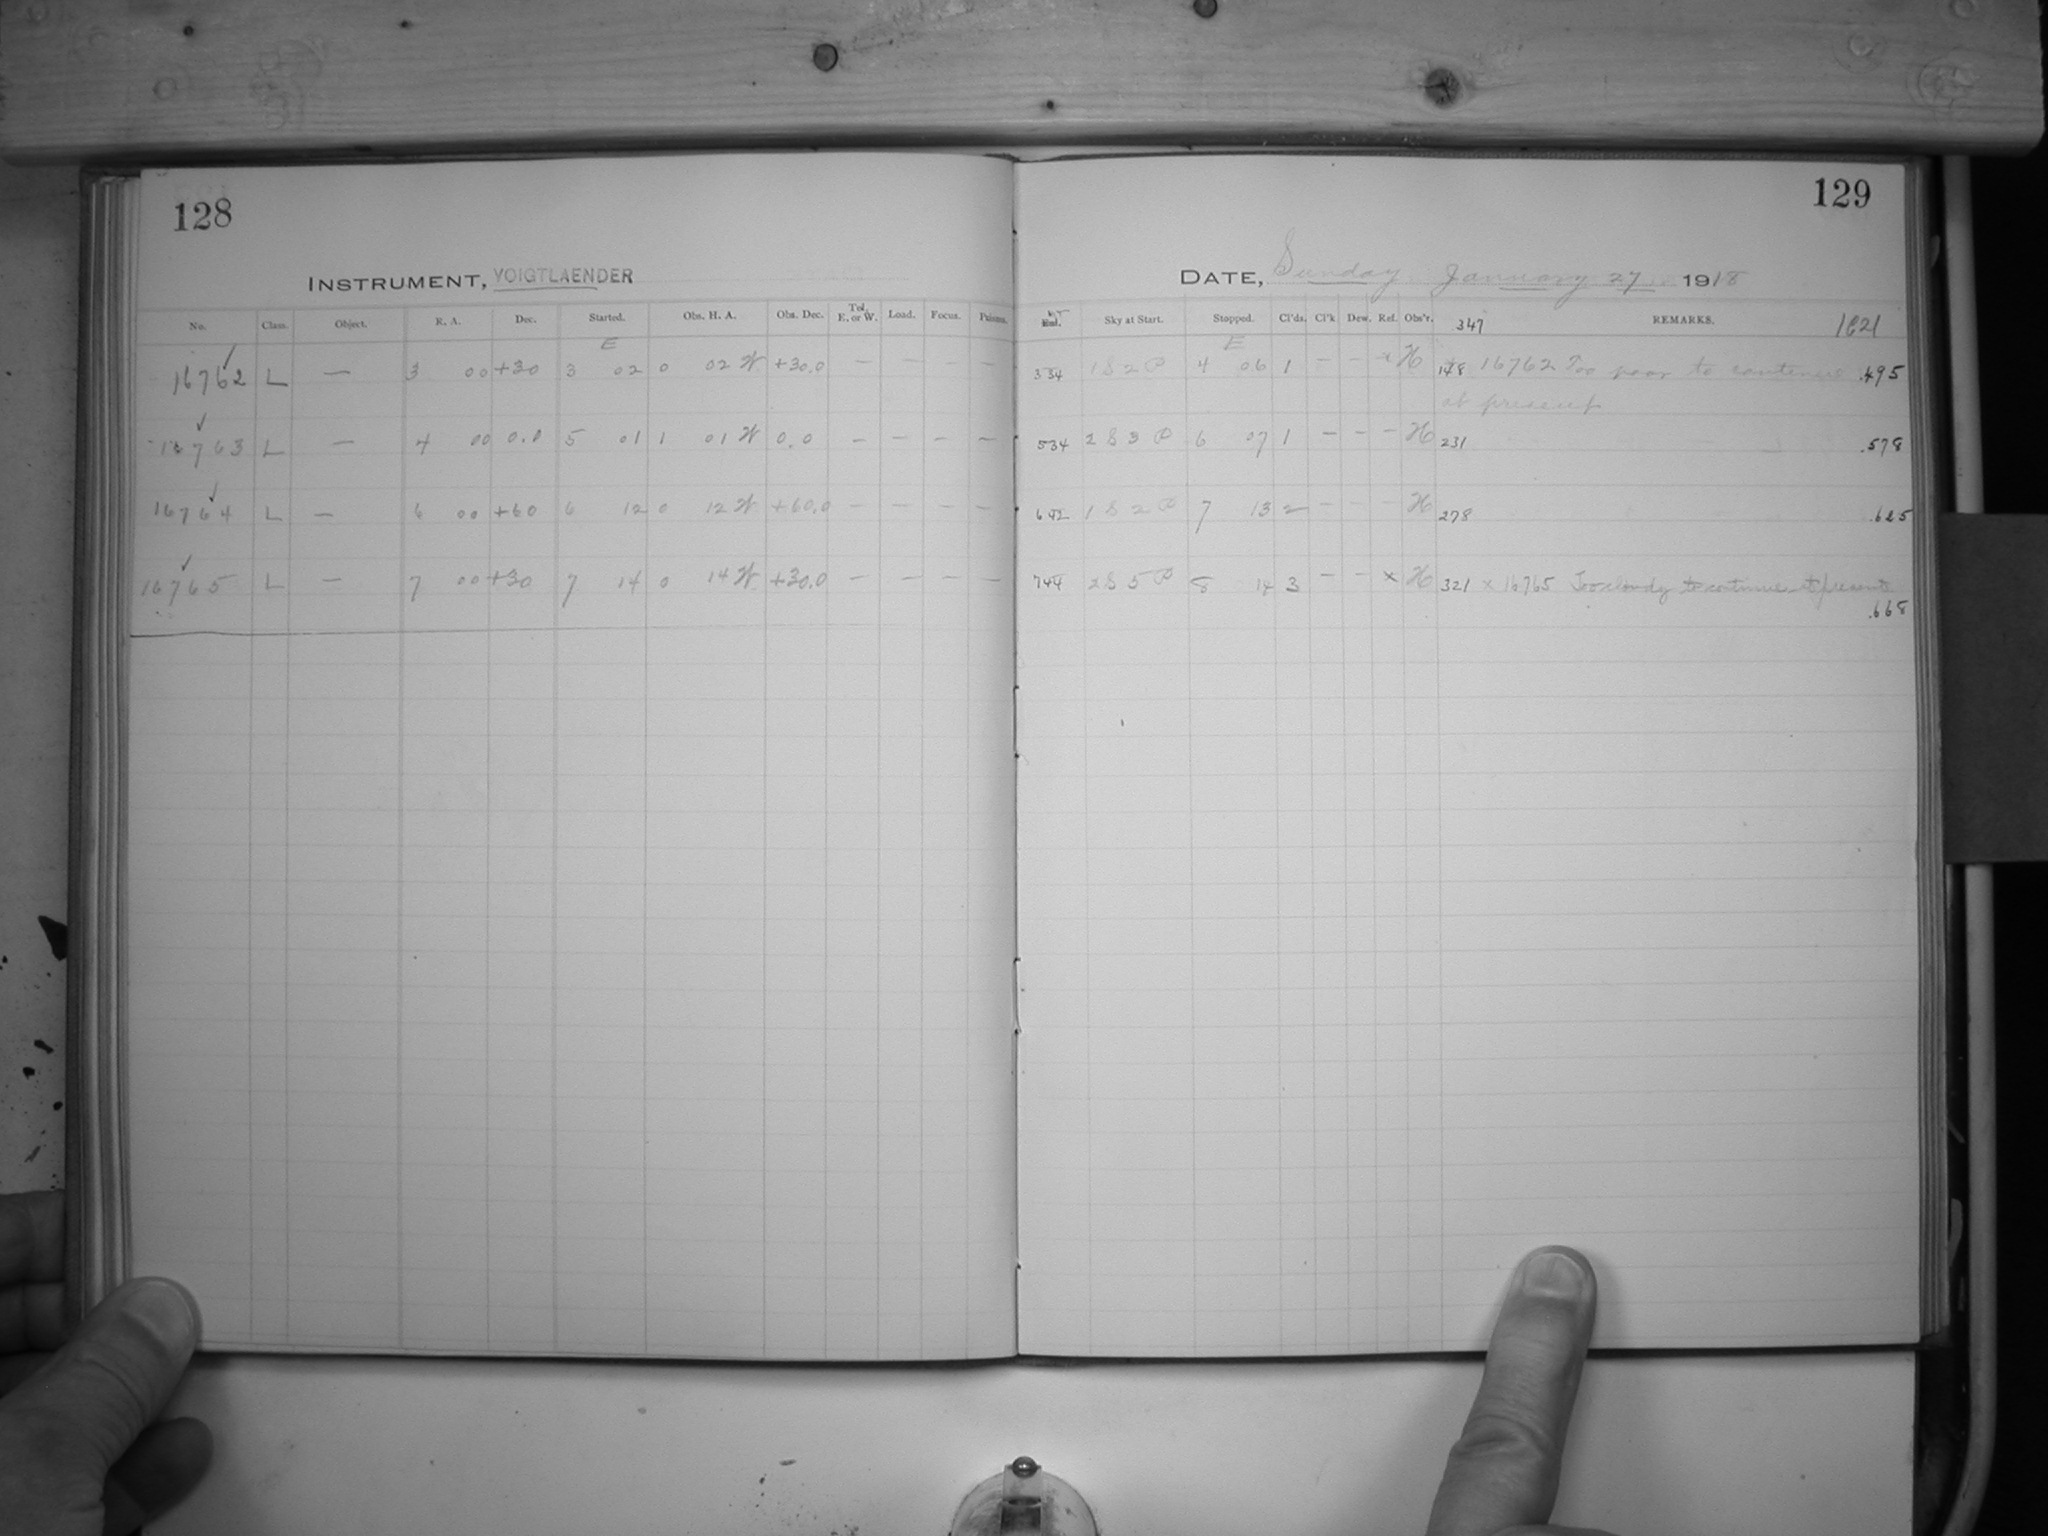 128
129
INSTRUMENT, VOIGTLAENDER
DATE, Sunday January 27 1918
No. Class. Object. R. A. Dec. Started. Obs. H. A. Obs. Dec. Tel. E. or W. Load. Focus. Prisms. Sky at Start. Stopped. Cl'ds. Cl'k Dew. Ref. Obs'r. 347 REMARKS. 1621
E E
16762 L — 3 00 +30 3 02 0 02 W +30.0 — — — — 334 1 S 2 P 4 06 1 — — x H 148 16762 Too poor to continue .495
at present
16763 L — 4 00 0.0 5 01 1 01 W 0.0 — — — — 534 2 S 3 P 6 07 1 — — — H 231 .578
16764 L — 6 00 +60 6 12 0 12 W +60.0 — — — — 642 1 S 2 P 7 13 2 — — — H 278 .625
16765 L — 7 00 +30 7 14 0 14 W +30.0 — — — — 744 2 S 5 P 8 14 3 — — x H 321 x 16765 Too cloudy to continue at present
.668